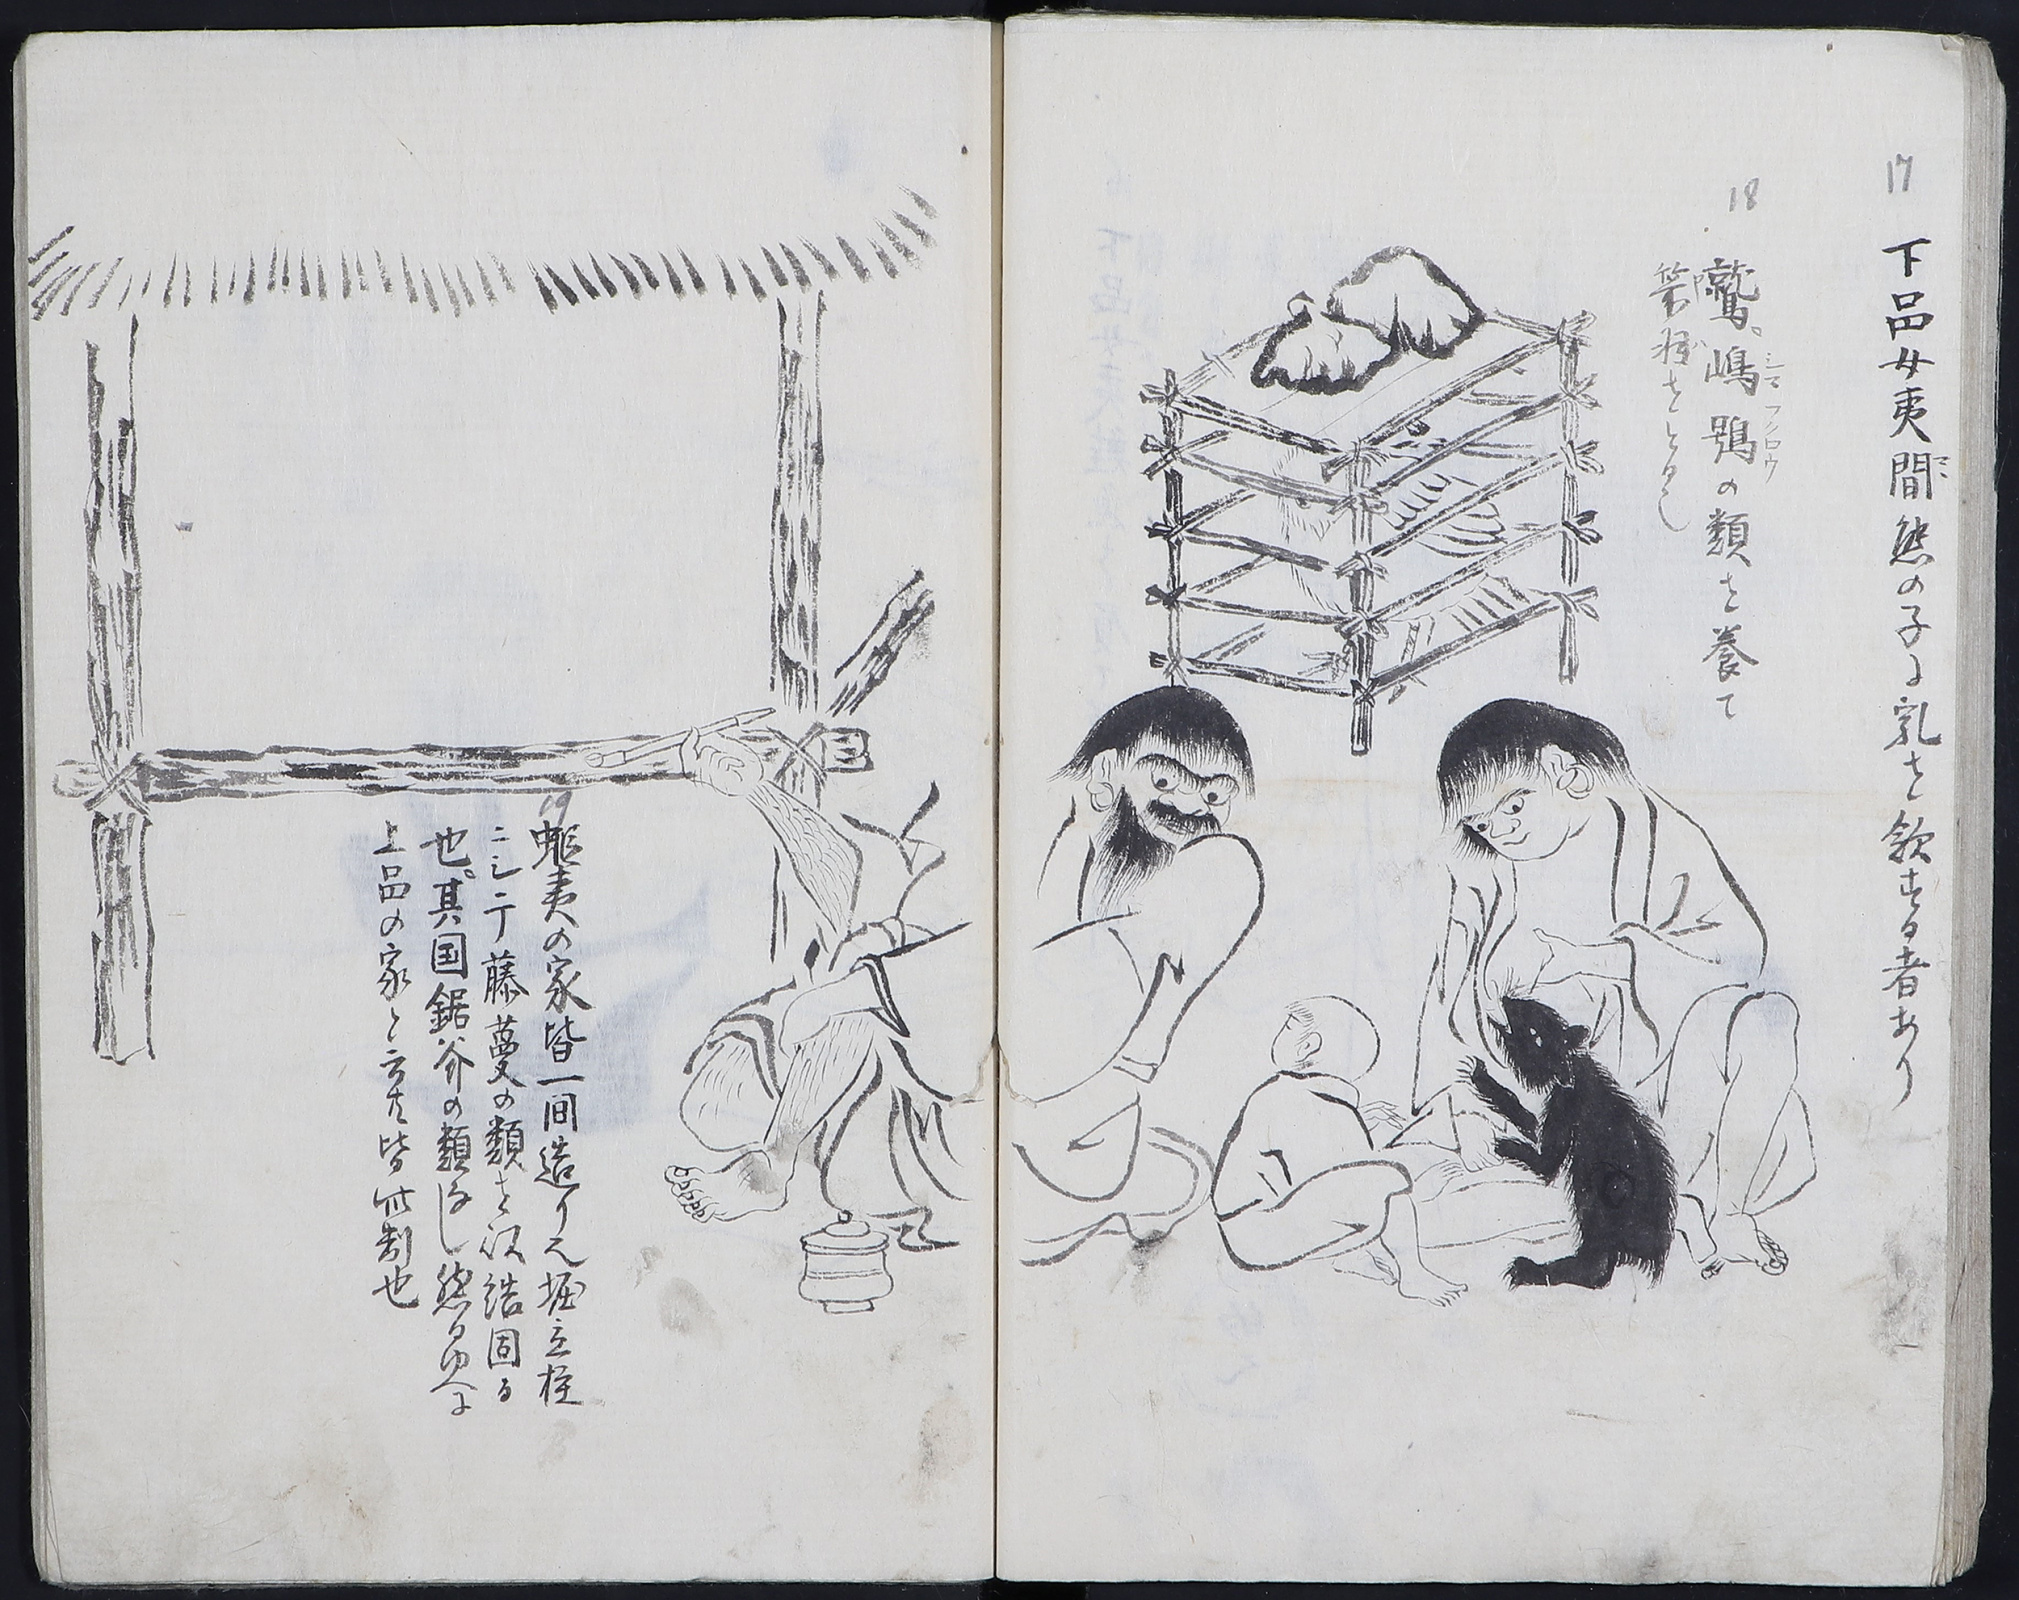 17
下品女夷間熊の子に乳を飲する者あり
18
鷲嶋鴞の類を養て
シマフクロウ
19
蝦夷の家皆一間造りニ堀立柱
ニシテ藤蔓の類を以結固る
也其国鋸斧の類なし然るゆへに
上品の家と云共皆此制也